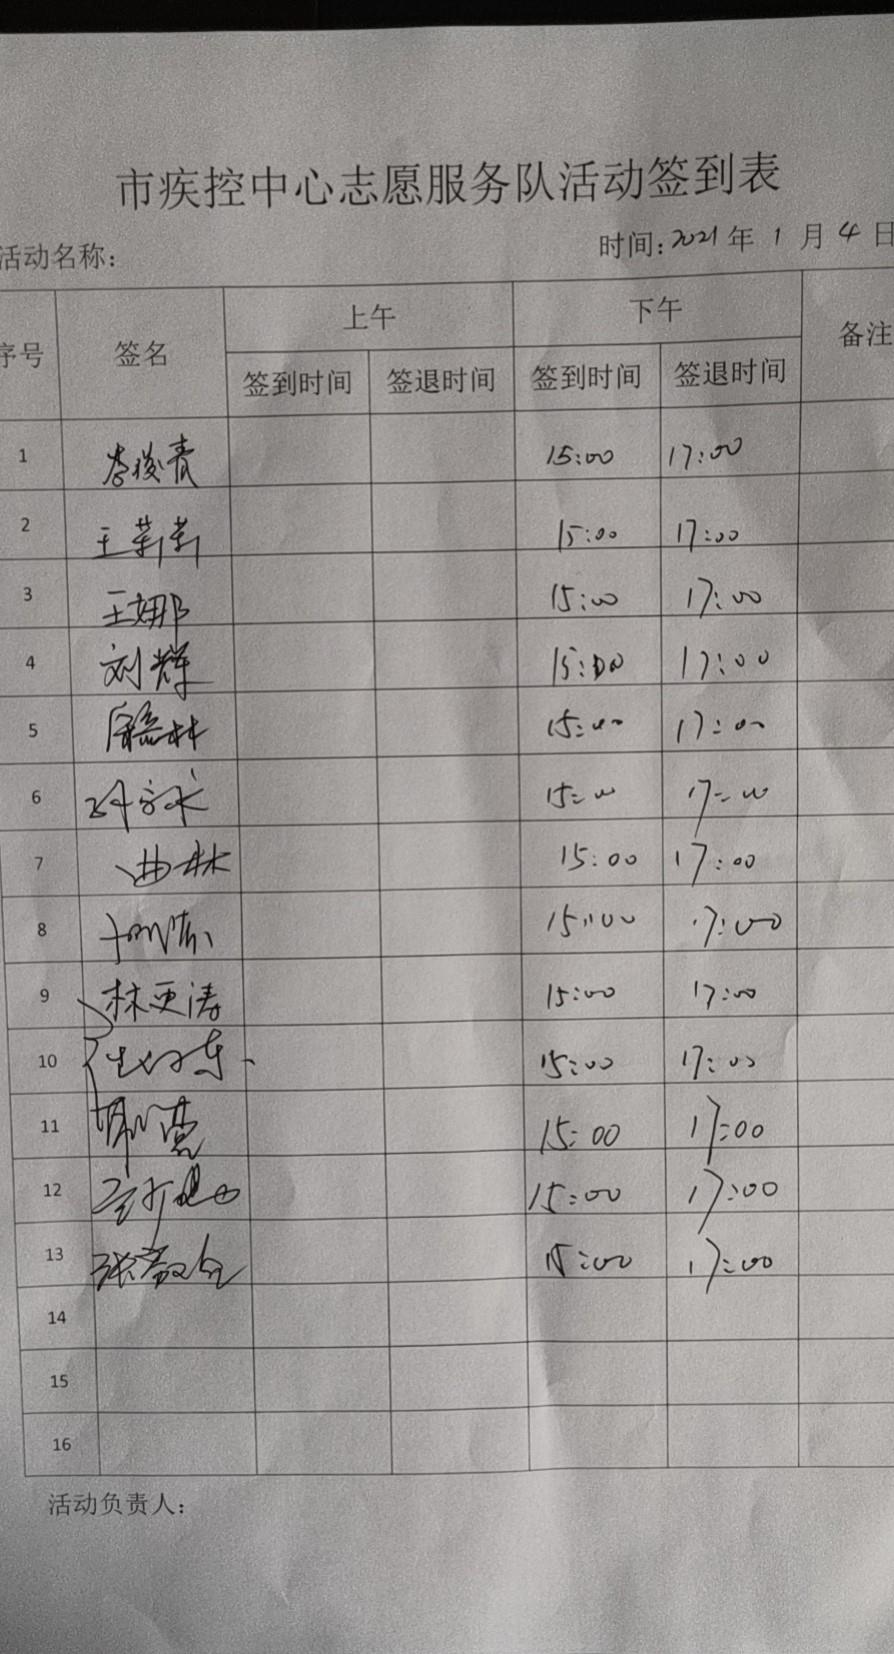 市疾控中心志愿服务队活动签到表
活动名称: 时间:2021年1月4日
序号 签名 上午 下午 备注
签到时间 签退时间 签到时间 签退时间
1 李俊青 15:00 17:00
2 王莉莉 15:00 17:00
3 王娜 15:00 17:00
4 刘辉 15:00 17:00
5 15:00 17:00
6 15:00 17:00
7 曲林 15:00 17:00
8 15:00 17:00
9 林更涛 15:00 17:00
10 15:00 17:00
11 15:00 17:00
12 15:00 17:00
13 15:00 17:00
14
15
16
活动负责人: